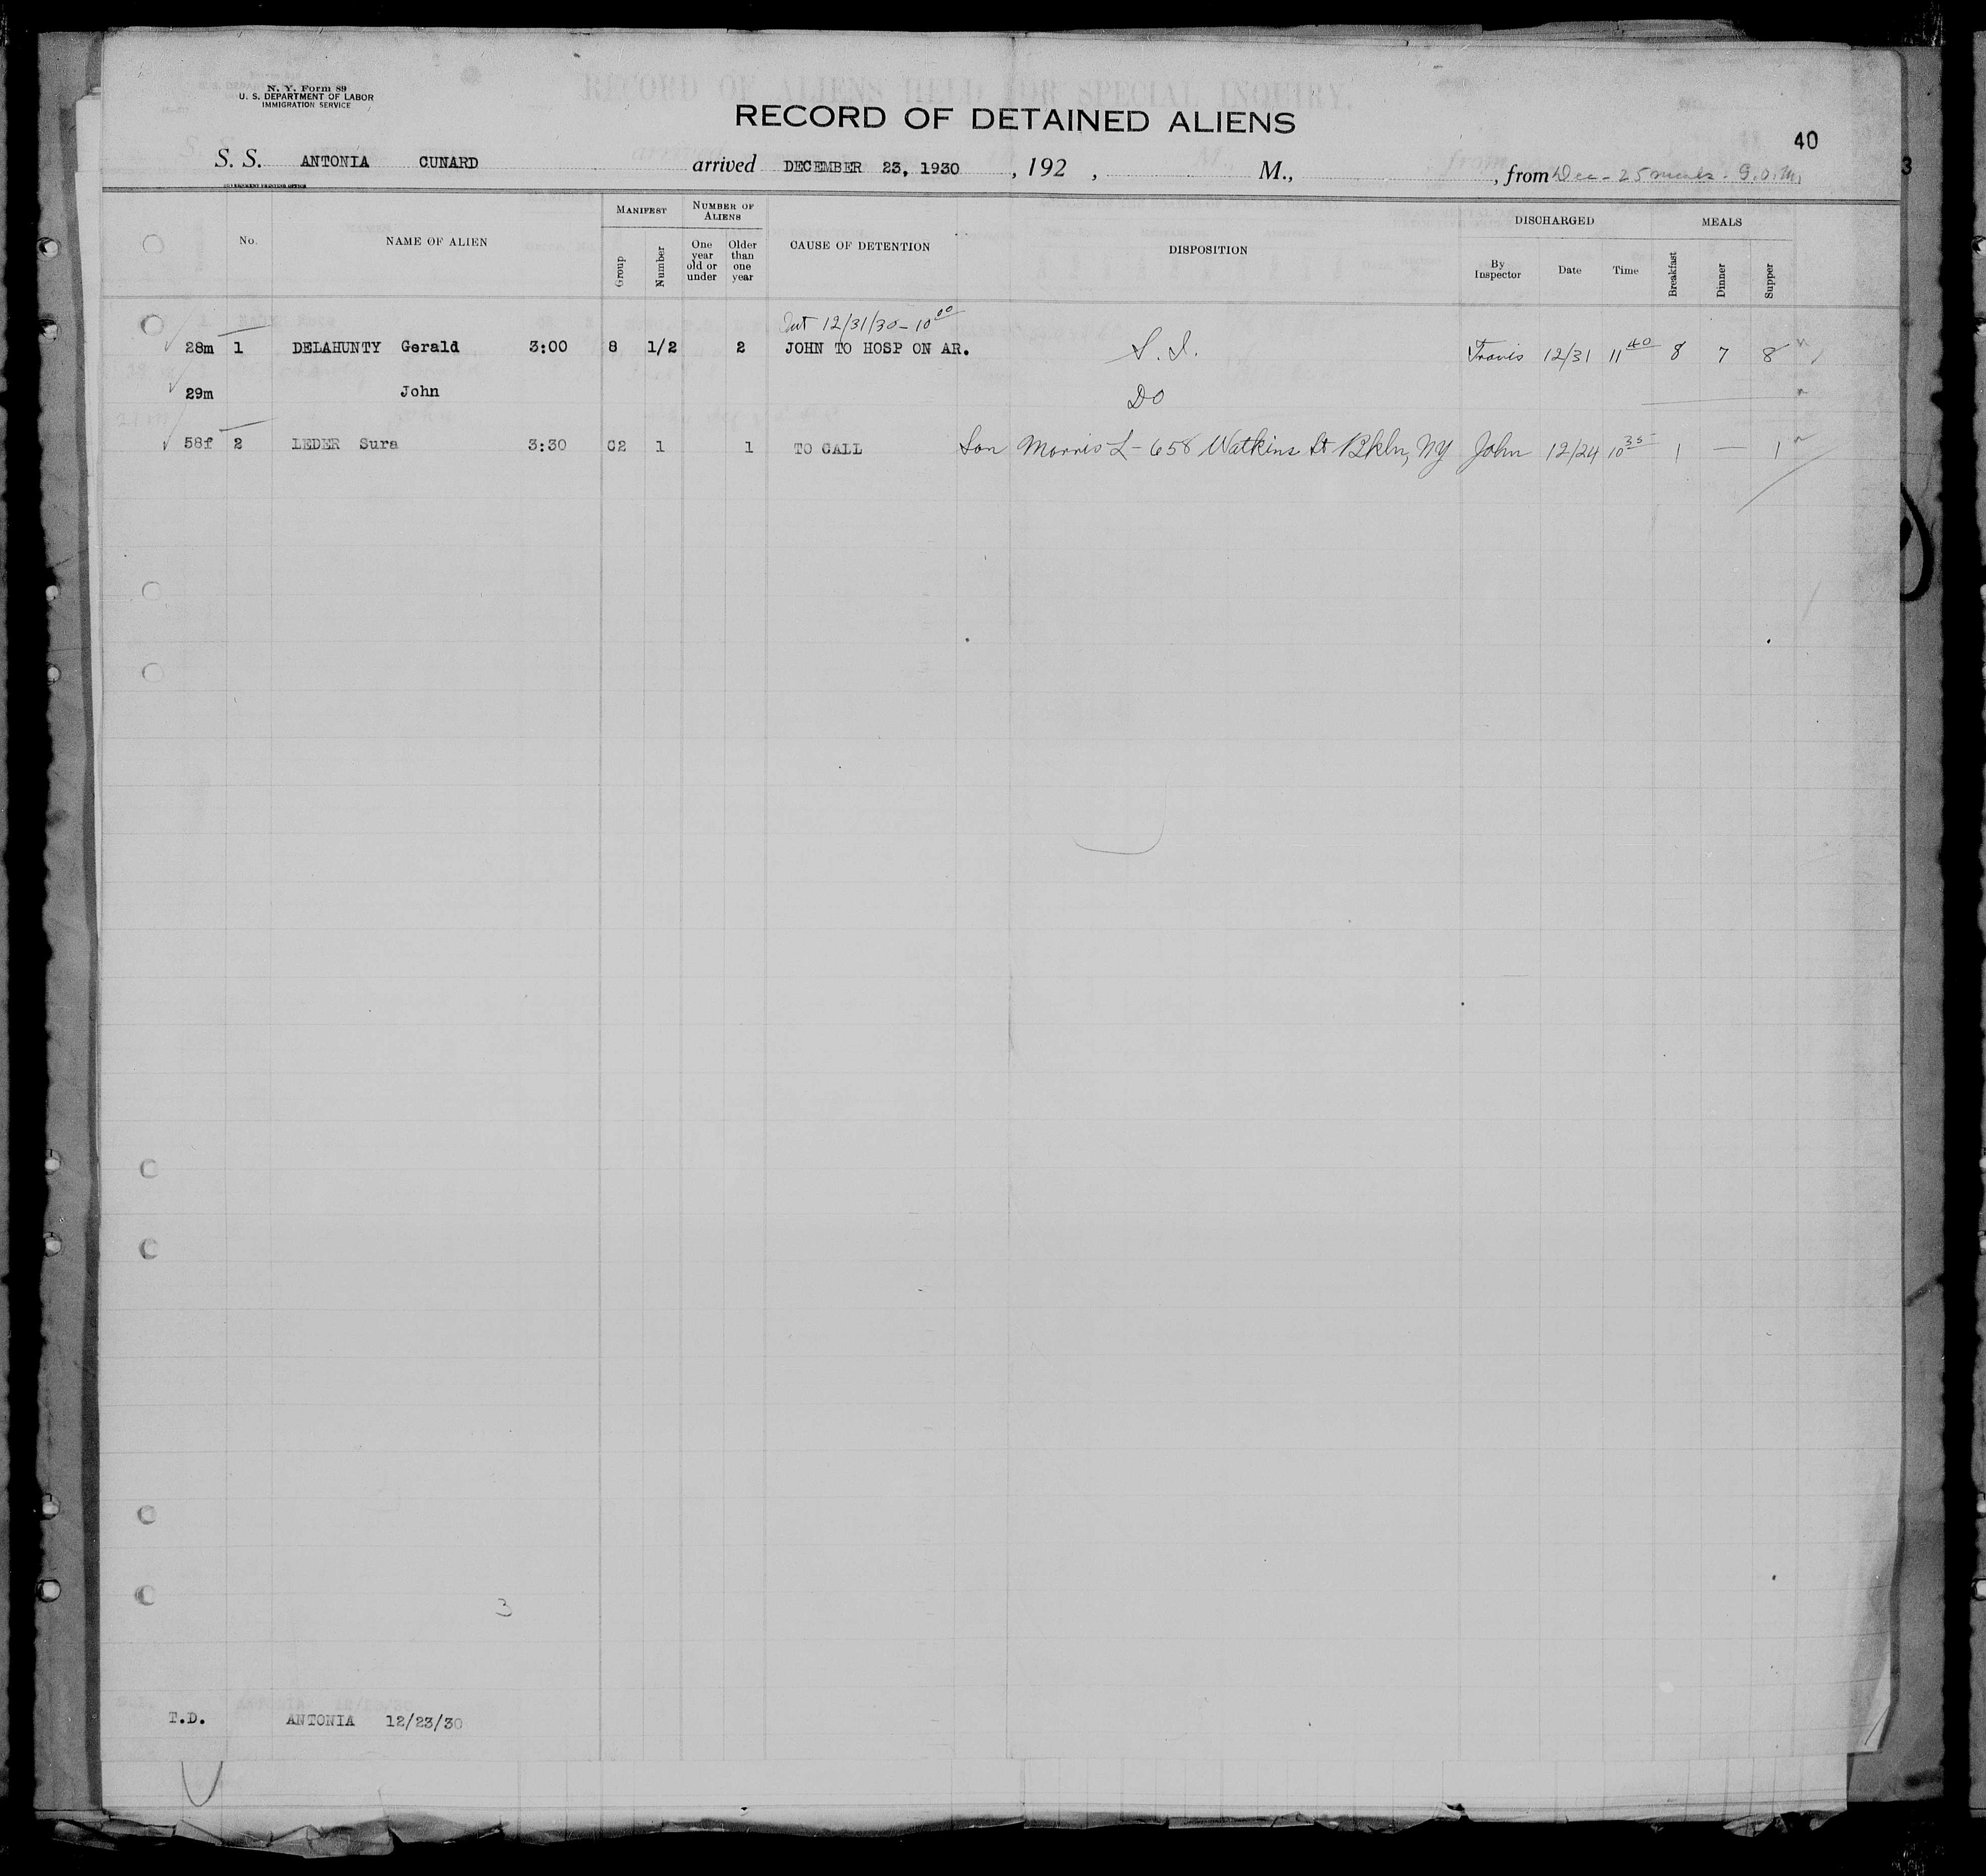 N. Y. Form 89
U. S. DEPARTMENT OF LABOR
IMMIGRATION SERVICE
RECORD OF DETAINED ALIENS
40
S. S. ANTONIA CUNARD arrived DECEMBER 23, 1930 , 192 , M., , from Dec - 25 meals - G.O.M.
GOVERNMENT PRINTING OFFICE
3
No. NAME OF ALIEN MANIFEST Group Number NUMBER OF ALIENS One year old or under Older than one year CAUSE OF DETENTION DISPOSITION DISCHARGED By Inspector Date Time MEALS Breakfast Dinner Supper
12/31/30 - 10 00
28m 1 DELAHUNTY Gerald 3:00 8 1/2 2 JOHN TO HOSP ON AR. S. I. Travis 12/31 11 40 8 7 8
29m John DO
58f 2 LEDER Sura 3:30 C2 1 1 TO CALL Son Morris L - 658 Watkins St Bkln, NY John 12/24 10 35 1 — 1
3
T.D. ANTONIA 12/23/30